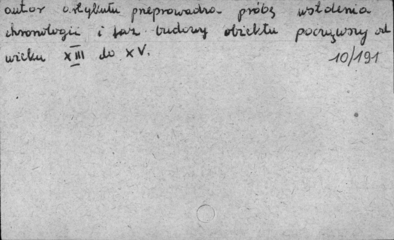 autor artykułu przeprowadza próbę ustalenia
chronologii i faz budowy obiektu począwszy od
wieku XIII do XV.
10/191